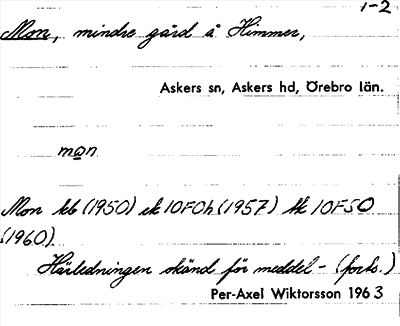 1-2
Mon, mindre gård å Himmer,
Askers sn, Askers hd, Örebro län.
mon
Mon kb (1950) ek 10F0h (1957) tk 10F50
(1960)
Härledningen okänd för meddel - (forts.)
Per-Axel Wiktorsson 1963